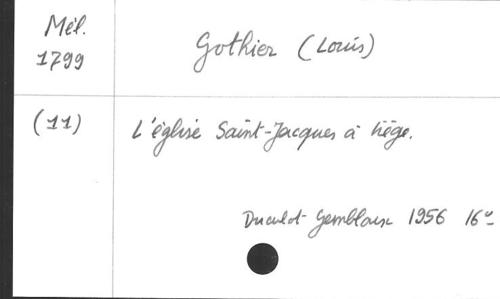 Mél.
1799
Gothier (Louis)
(11)
L'église Saint-Jacques à Liège.
Duculot Gembloux 1956 16°